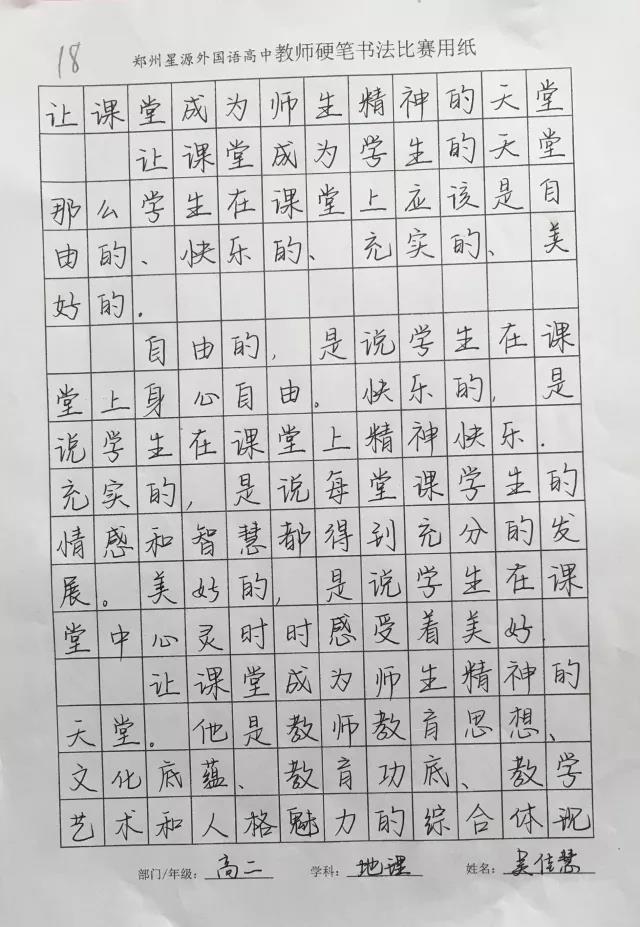 18
郑州星源外国语高中教师硬笔书法比赛用纸
让课堂成为师生精神的天堂
让课堂成为学生的天堂
那么学生在课堂上应该是自
由的、快乐的、充实的、美
好的.
自由的,是说学生在课
堂上身心自由。快乐的,是
说学生在课堂上精神快乐.
充实的,是说每堂课学生的
情感和智慧都得到充分的发
展。美好的,是说学生在课
堂中心灵时时感受着美好.
让课堂成为师生精神的
天堂。他是教师教育思想、
文化底蕴、教育功底、教学
艺术和人格魅力的综合体现
部门/年级: 高二 学科: 地理 姓名: 吴佳慧